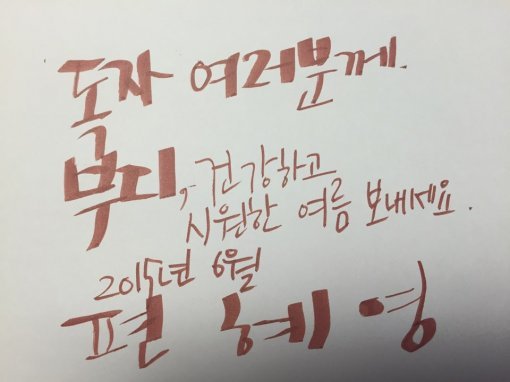 독자 여러분께.
부디, 건강하고
시원한 여름 보내세요.
2015년 6월
편혜영